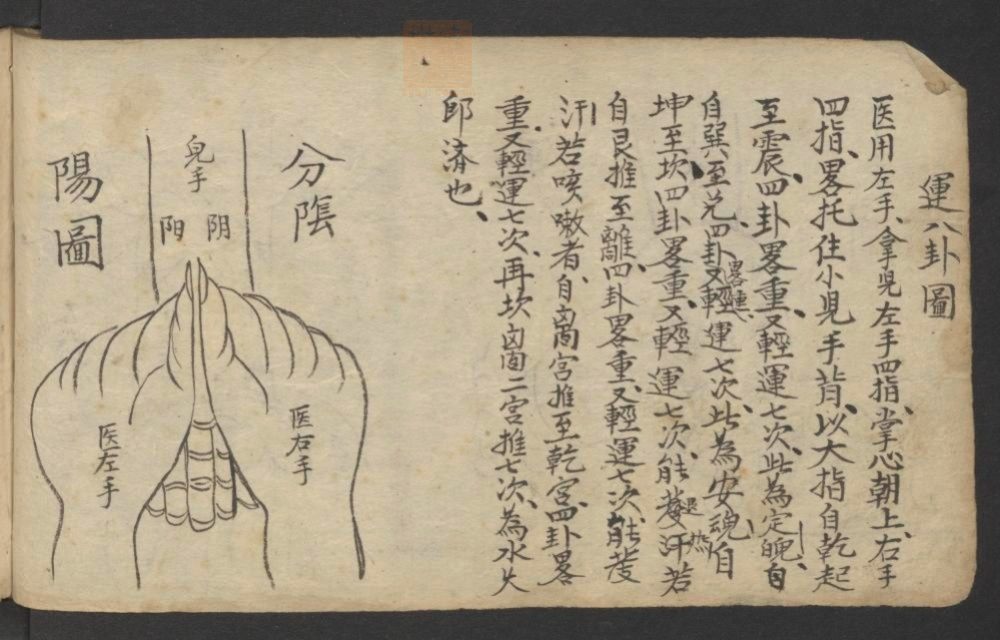 運八卦圖
医用左手、拿児左手四指、掌心朝上、右手
四指、畧托住小児手背、以大指自乾起
至震、四卦畧重、又輕運七次、此為定魄、自
自巽、至兑、四卦又畧重輕運七次、此為安魂、自
坤至坎、四卦畧重、又輕運七次、能發汗退热若
自艮推至離、四卦畧重、又輕運七次、能發
汗、若咳嗽者、自离宫推至乾宫、四卦畧
重、又輕運七次、再坎离二宫推七次、為水火
即済也、
分陰
陽圖
児手
阴
阳
医右手
医左手